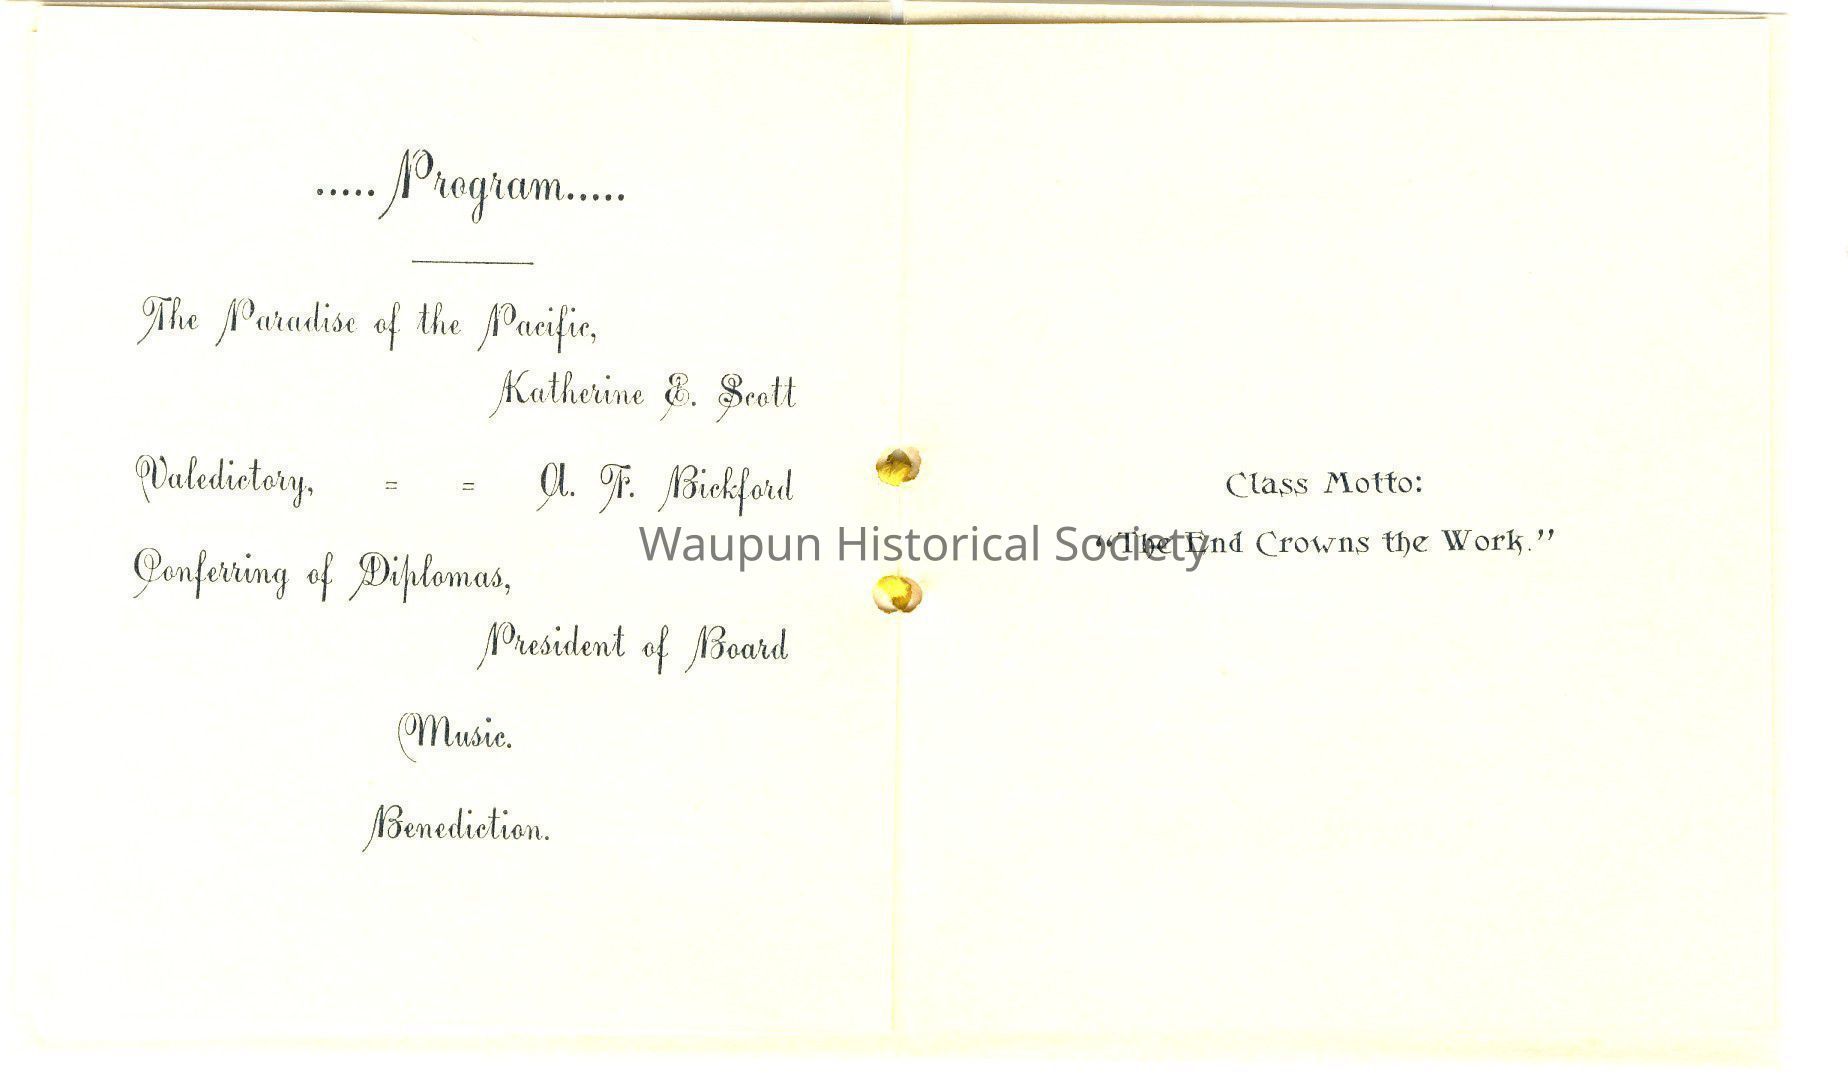 .....Program.....
The Paradise of the Pacific,
Katherine E. Scott
Valedictory, = = A. F. Bickford
Conferring of Diplomas,
President of Board
Music.
Benediction.
Class Motto:
“The End Crowns the Work.”
Waupun Historical Society